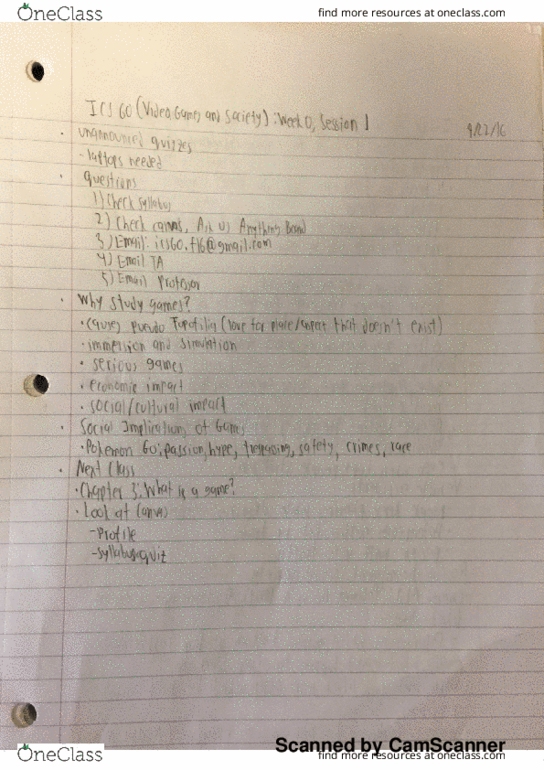 OneClass find more resources at oneclass.com
ICS 60 (Video Games and Society): Week 0, Session 1 9/22/16
• unannounced quizzes
- laptops needed
• questions
1) Check syllabus
2) Check canvas, Ask Us Anything Board
3) Email: ics60.f16@gmail.com
4) Email TA
5) Email Professor
• Why study games?
• causes pseudo Topofilia (love for place/ that doesn't exist)
• immersion and simulation
• serious games
• economic impact
• social/cultural impact
• Social Implications of Games
• Pokemon Go: passion, hype, trespassing, safety, crimes, race
• Next Class
• Chapter 3: What is a game?
• Look at Canvas
- Profile
- syllabus quiz
Scanned by CamScanner
OneClass find more resources at oneclass.com